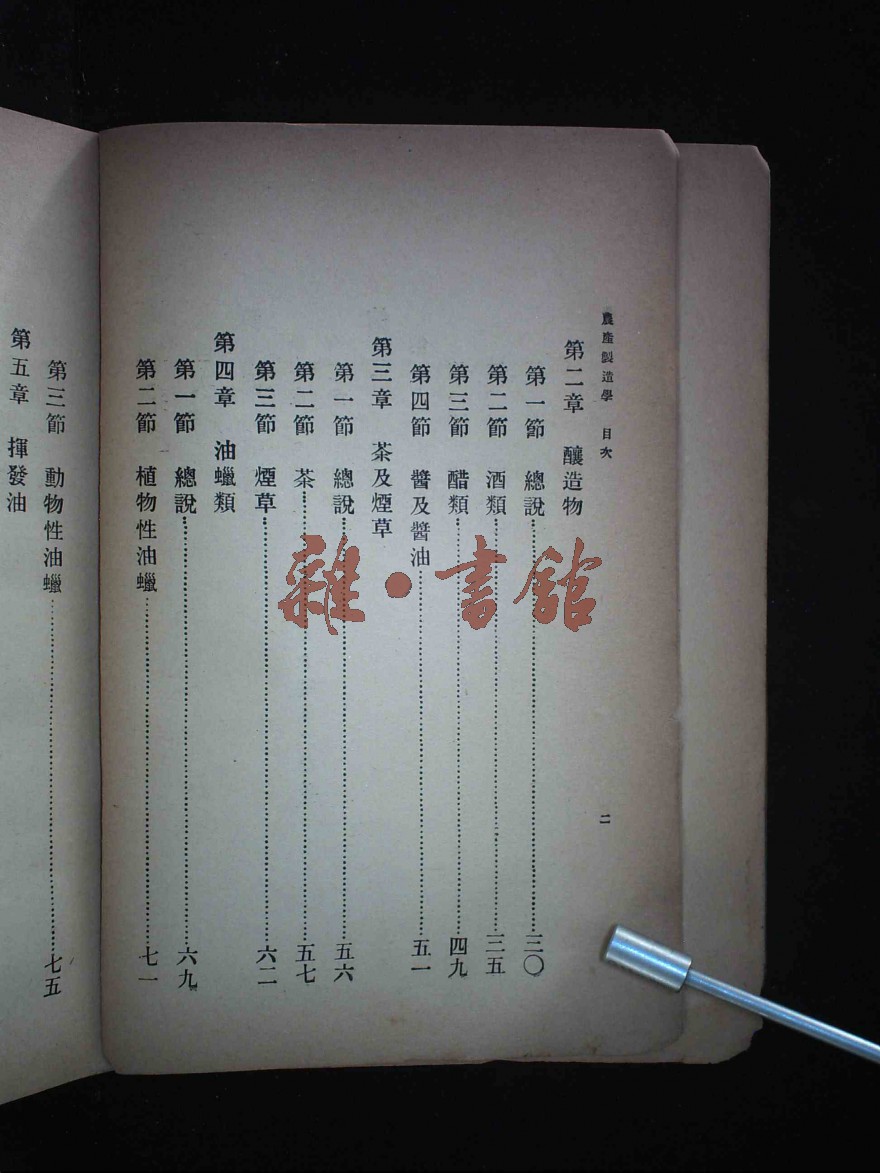 農產製造學 目次
二
第二章 釀造物
第一節 總說 三〇
第二節 酒類 三五
第三節 醋類 四九
第四節 醬及醬油 五一
第三章 茶及煙草
第一節 總說 五六
第二節 茶 五七
第三節 煙草 六二
第四章 油蠟類
第一節 總說 六九
第二節 植物性油蠟 七一
第三節 動物性油蠟 七五
第五章 揮發油
雜·書館